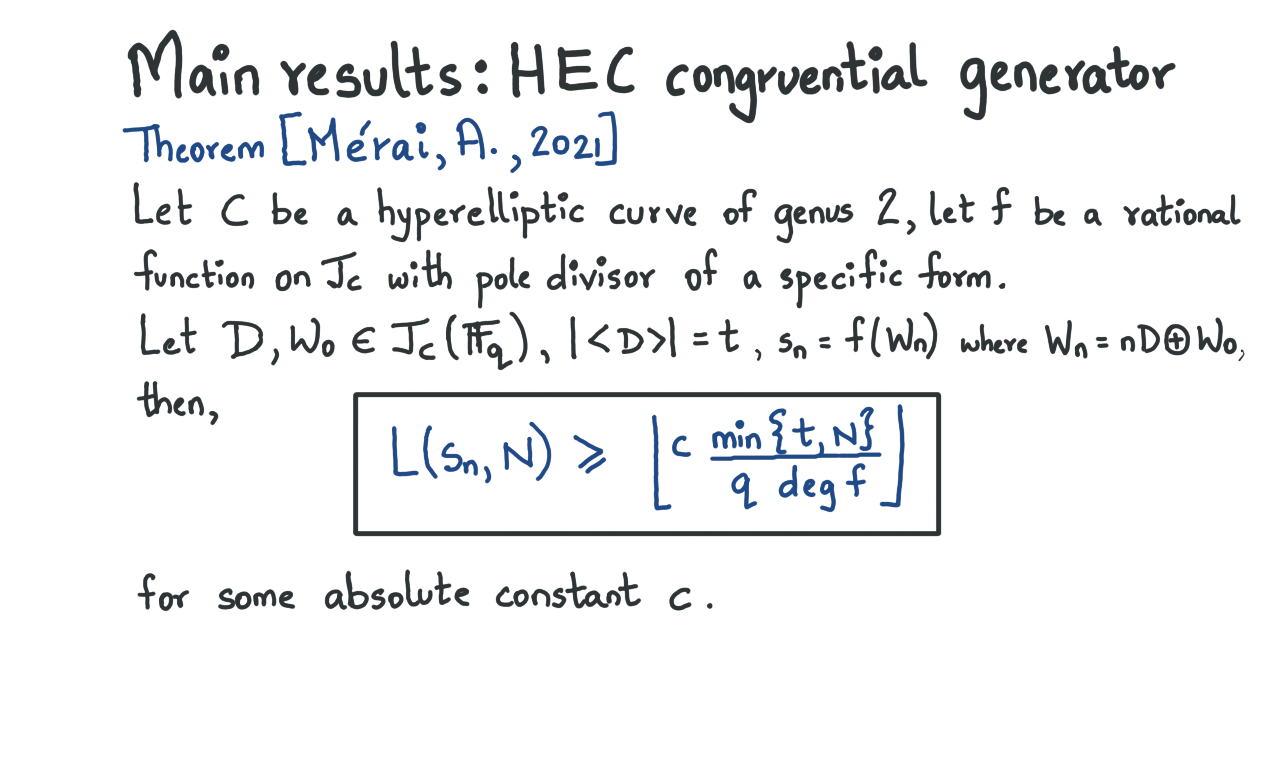 Main results: HEC congruential generator
Theorem [Mérai, A., 2021]
Let C be a hyperelliptic curve of genus 2, let f be a rational
function on J_C with pole divisor of a specific form.
Let D, W₀ ∈ J_C(𝔽_q), |<D>| = t, sₙ = f(Wₙ) where Wₙ = nD⊕W₀,
then,
L(sₙ, N) ⩾ ⌊c min{t, N} / q deg f⌋
for some absolute constant c.